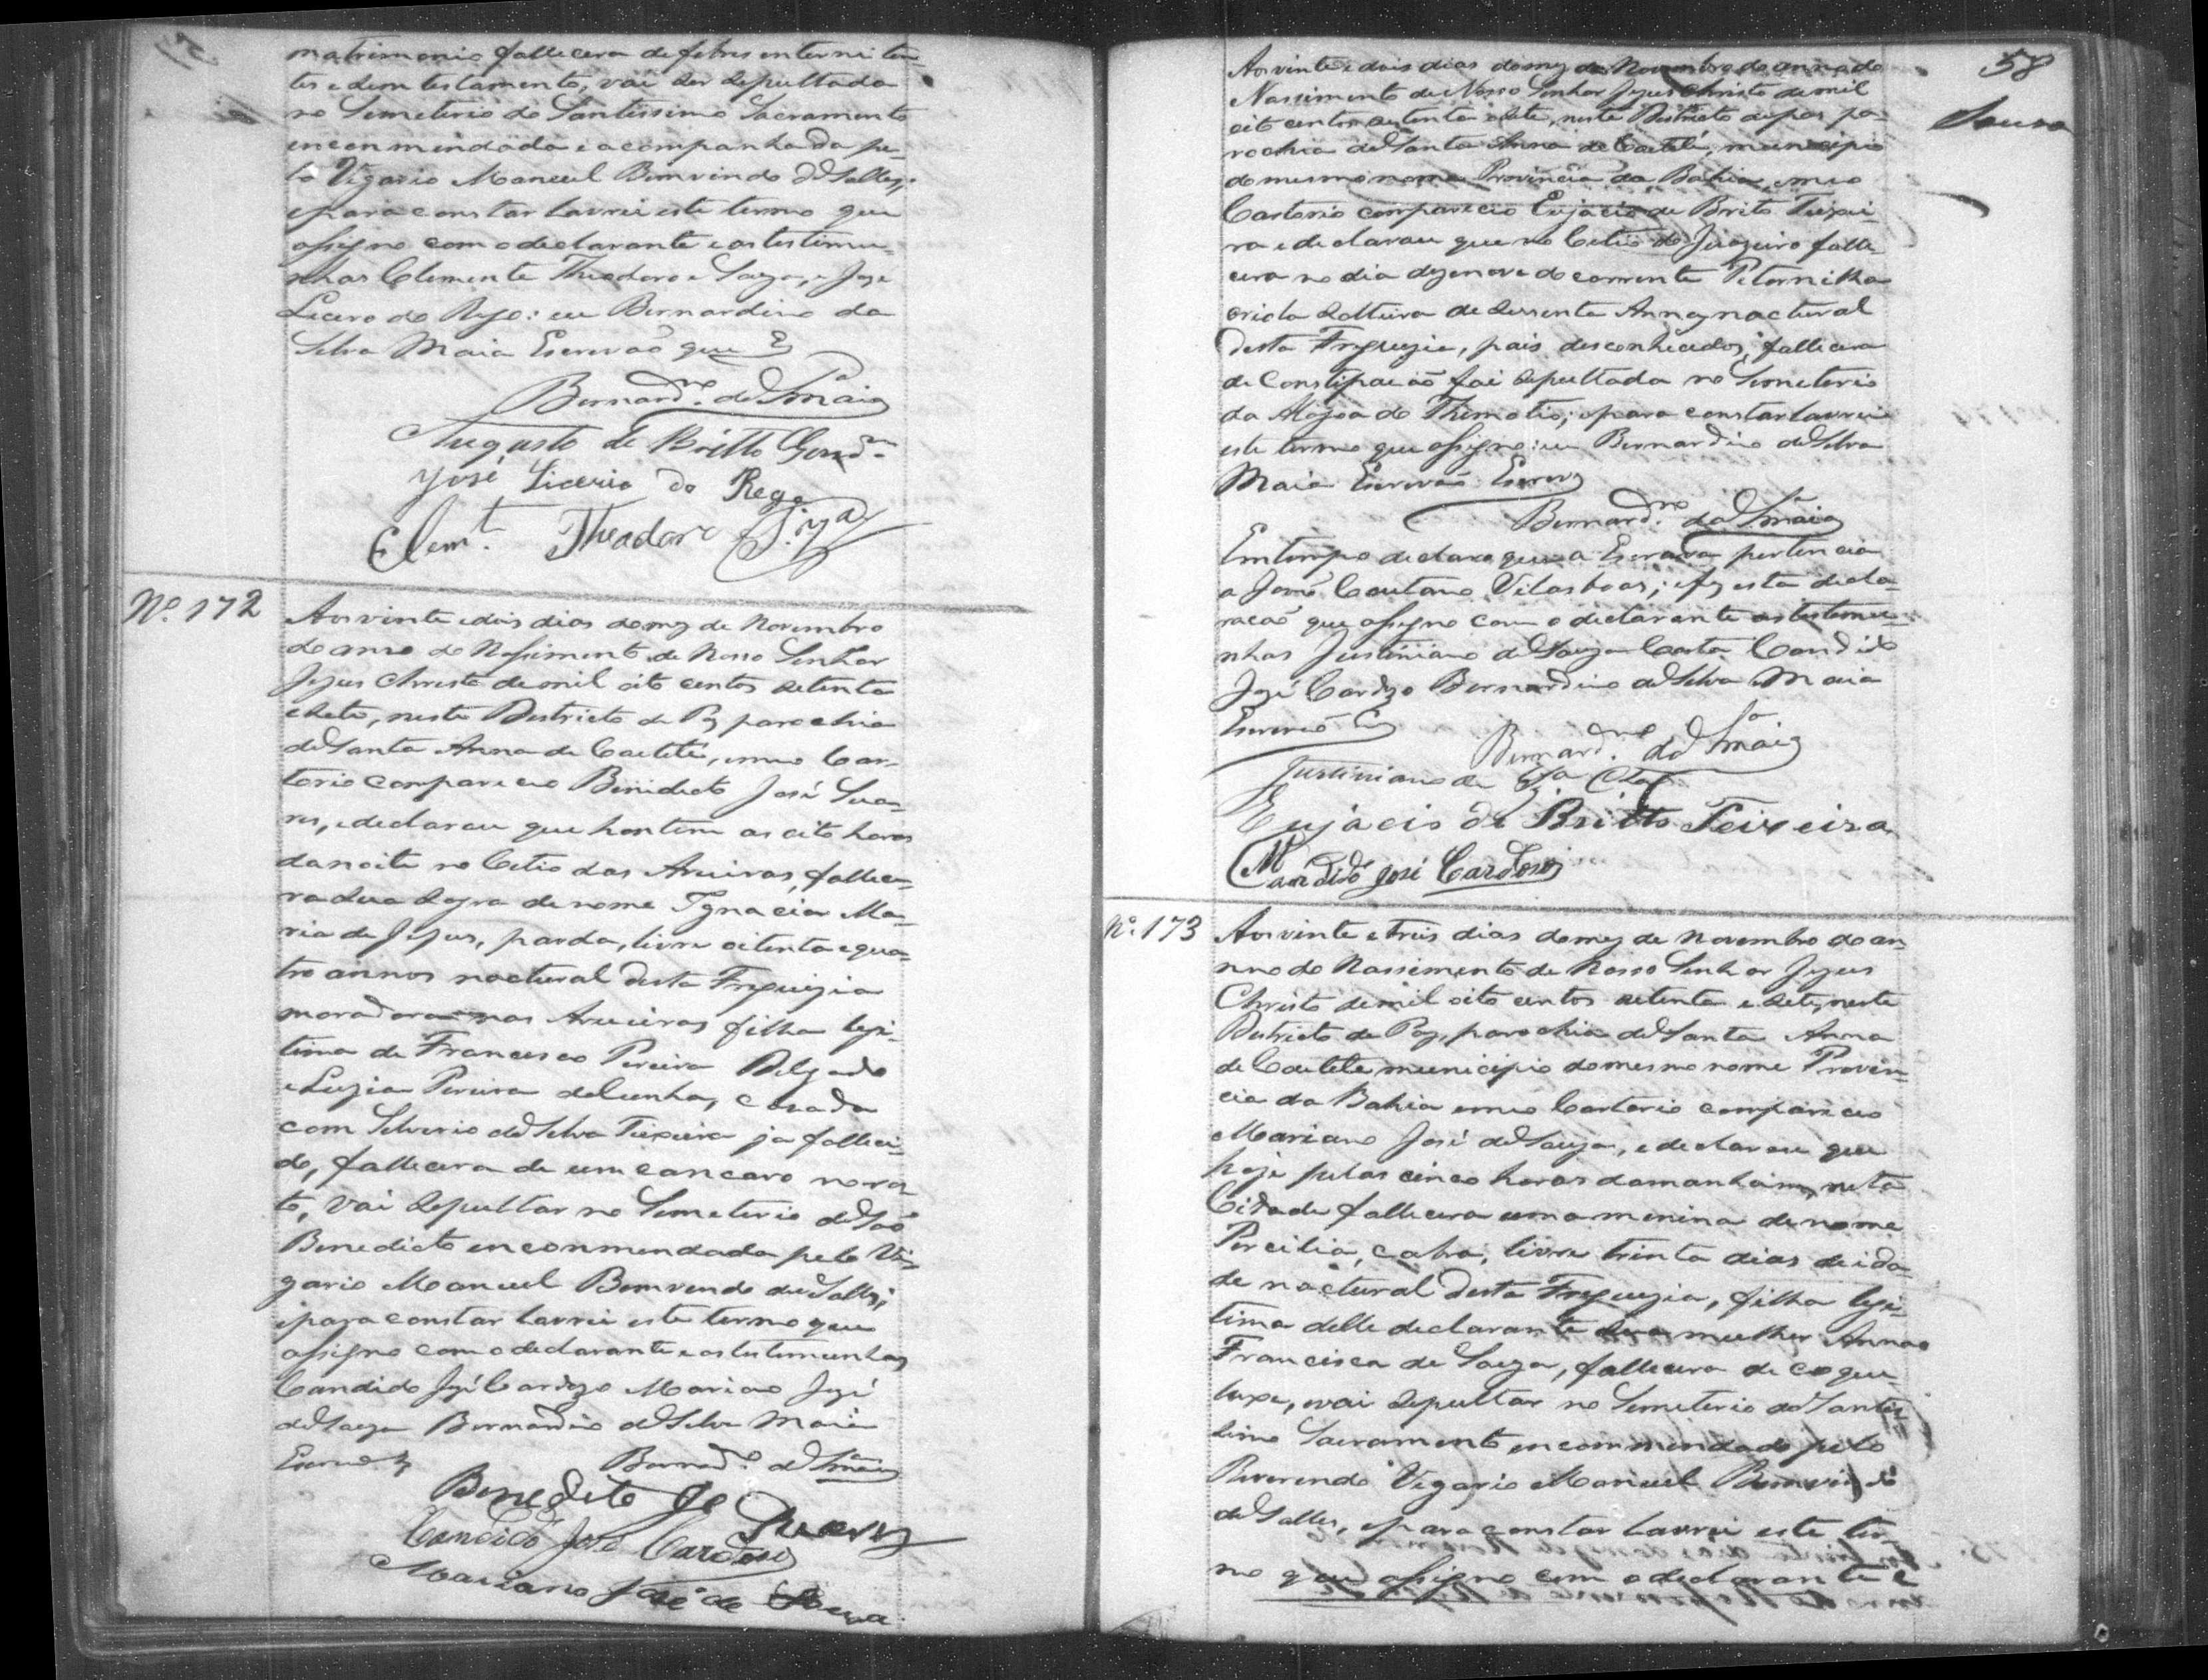 matrimonio fallecera de febres entermiten-
tes e sem testamento, vai ser sepultada
no Semeterio do Santissimo Sacramento
enconmendada e acompanhada pe-
lo Vigario Manuel Bemvindo de Salles,
e para constar lavrei este termo que
assigno com o declarante e as testimu-
nhas Clemente Theodoro e Souza, e Joze
Licero do Rego: eu Bernardino da
Silva Maia Escrevão que
Bernard.no da S.a Maia
Augusto de Britto Gond.m
José Licerio do Rego
Clem.t Theodoro
Nº. 172
Aos vinte e dois dias do mez de Novembro
do anno do Nassimento de Nosso Senhor
Jezus Christo de mil oito centos setenta
e sete, neste Destricto de Paz parochia
de Santa Anna de Caetité, em meo Car-
torio compareceo Benidicto José Soa-
res, e declarou que hontem as oito horas
da noite no Citio das Aroeiras, fallece-
ra sua sogra de nome Ignacia Ma-
ria de Jesus, parda, livre oitenta e qua-
tro annos nactural desta Freguizia
moradora nas Aroeiras filha legi-
tima de Francisco Pereira Delgado
e Luzia Pereira da Cunha, casada
com Silverio da Silva Teixeira ja falleci-
do, fallecera de um cancaro no ros-
to, vai sepultar no Semeterio de São
Benedicto enconmendada pelo Vi-
gario Manuel Bemvendo de Salles,
e para constar lavrei este termo que
assigno com o declarante e as testemunhas
Candido Jozé Cardozo Mariano Jozé
de Souza Bernardino da Silva Maia
Bernard.o da S.a Maia
Benedito Je Suares
Candido José Cardoso
Mariano José de Souza
58
Souza
Aos vinte e dois dias do mez de Novembro do anno do
Nassimento de Nosso Senhor Jezus Christo de mil
oito centos setenta e sete, neste Districto de paz pa-
rochia de Santa Anna de Caetité, municipio
do mesmo nome Provincia da Bahia, em meo
Cartorio compareceo Eujacio de Brito Teixei-
ra e declarou que no Citio do Juazeiro falle-
cera no dia dezenove do corrente Petornilha
criola solteira de sessenta Annos nactural
desta Freguezia, pais desconhecidos, fallecera
de Constipação foi sepultada no Semeterio
da Alagoa do Themotio; e para constar lavrei
este termo que assigno: eu Bernardino da Silva
Maia Escrevão
Bernard.no da S.a Maia
Emtempo declaro que a Escrava pertencia
a Caetano Vilasboas; e fiz esta decla-
ração que assigno com o declarante as testemu-
nhas Justiniano de Souza Costa Candido
Jozé Cardozo Bernardino da Silva Maia
Escrevão
Bernard.no da S.a Maia
Justiniano de
Eujacio de Britto Teixeira
Candido José Cardoso
Nº. 173
Aos vinte e treis dias do mez de Novembro do an-
no do Nassimento de Nosso Senhor Jezus
Christo de mil oito centos setenta e sete, neste
Destricto de Paz, parochia de Santa Anna
de Caetete municipio do mesmo nome Provin-
cia da Bahia em meo Cartorio compareceo
Mariano José de Souza, e declarou que
hoje pelas cinco horas da manhãm, nesta
Cidade fallecera uma menina de nome
Percilia, cabra, livre trinta dias de ida-
de nactural desta Freguezia, filha legi-
tima delle declarante sua mulher Anna
Francisca de Souza, fallecera de coque-
luxe, e vai sepultar no Semeterio do Santis-
simo Sacramento, encommendado pelo
Reverendo Vigario Manuel Bemvindo
de Salles, e para constar lavrei este ter-
mo que assigno com o declarante e